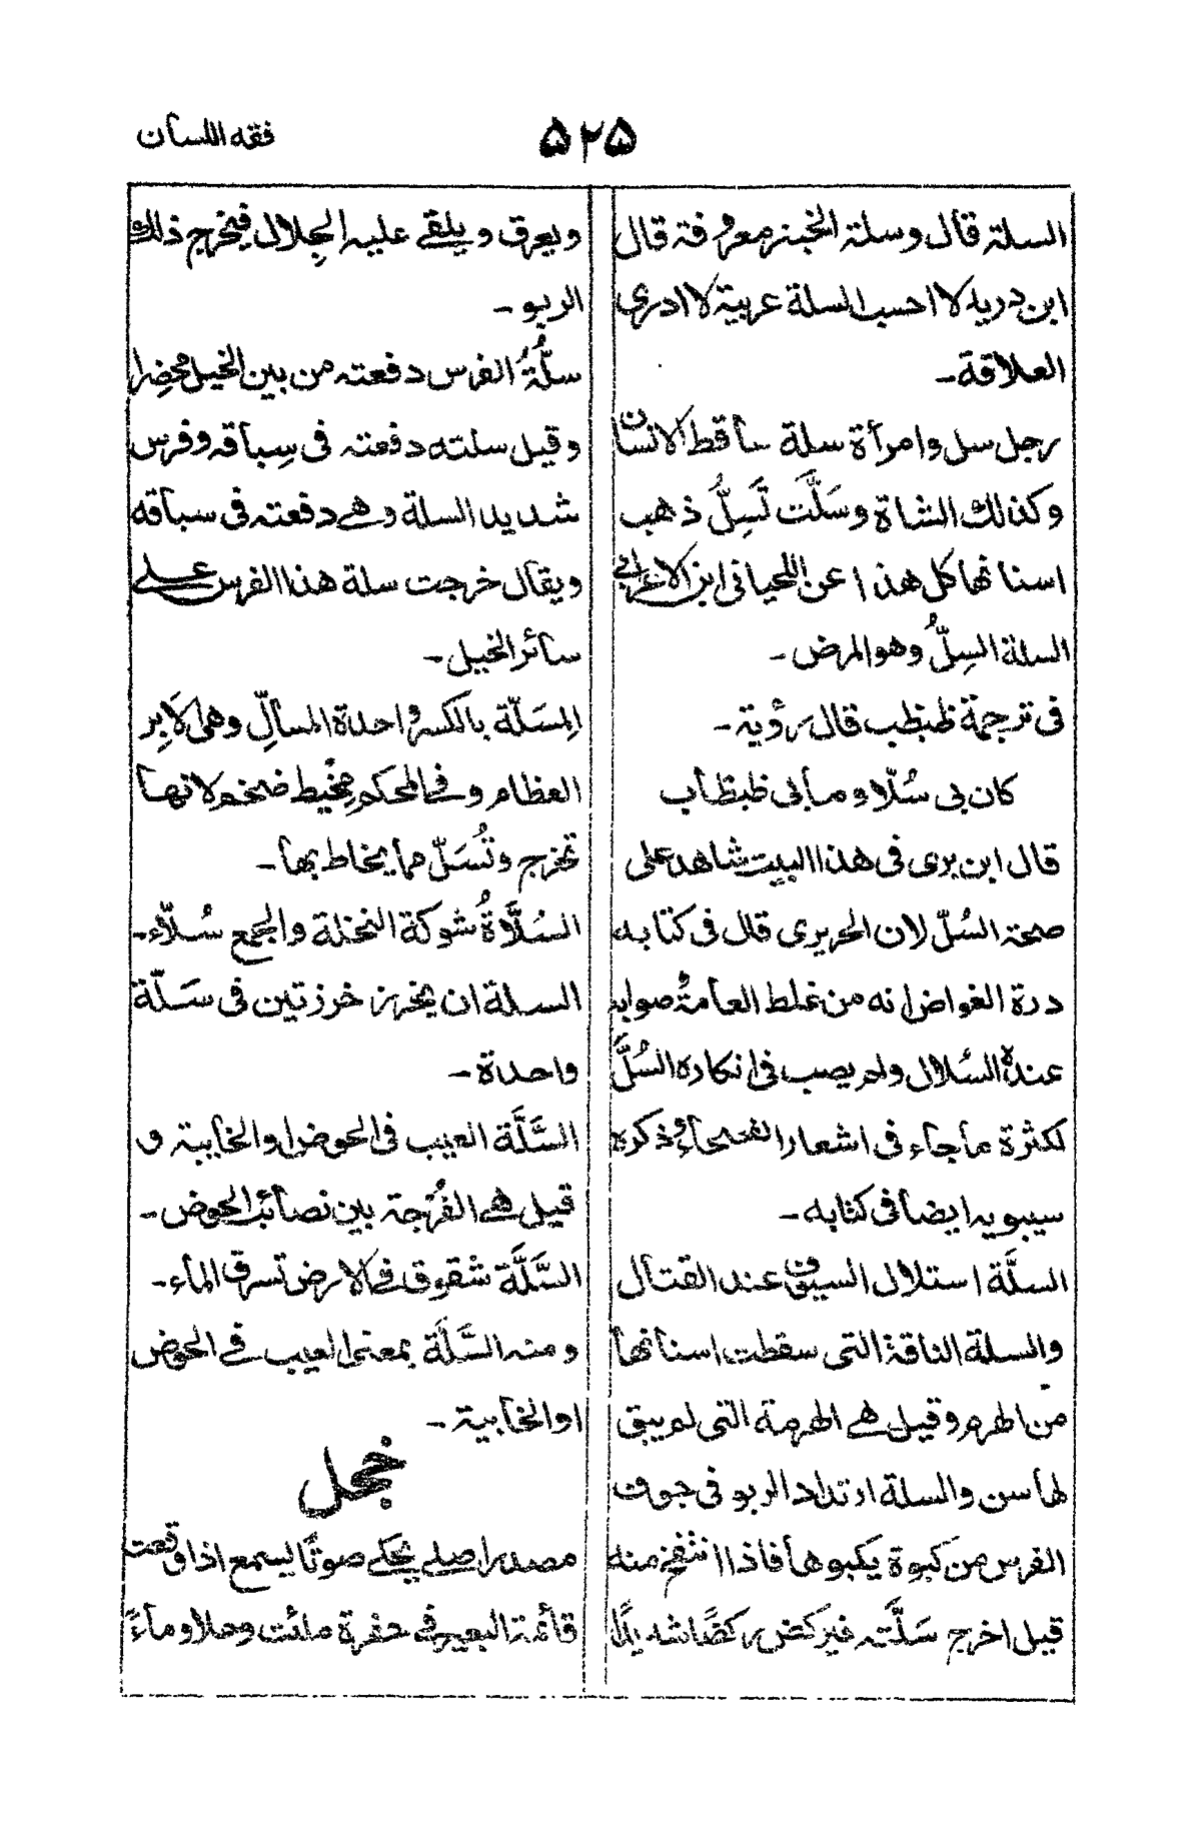 فقه اللسان
۵۲۵
السلة قال وسلة الخبز معروفة قال
ابن دريد لا احسب السلة عربية لا ادرى
العلاقة۔
رجل سل وامرأة سلة ساقط الاسنان
وكذلك الشاة وسَلَّت تَسِلُّ ذهب
اسنانها كل هذا عن اللحيانى ابن الاعرابي
السلة السِلُّ وهو المرض۔
فى ترجمة ظبظب قال رؤبة۔
كان بى سُلّا وما بى ظبظاب
قال ابن برى فى هذا البيت شاهد على
صحة السُلّ لان الحريرى قال فى كتابه
درة الغواص انه من غلط العامة وصوابه
عنده السُلال ولم يصب فى انكاره السُلَّ
لكثرة ما جاء فى اشعار الفصحاء وذكره
سيبويه ايضا فى كتابه۔
السلَّة استلال السيوف عند القتال
والسلة الناقة التى سقطت اسنانها
من الهرم وقيل هى الهرمة التى لم يبق
لها سن والسلة ارتداد الربو فى جوف
الفرس من كبوة يكبوها فاذا انتفخ منه
قيل اخرج سَلَّته فيركض ركضًا شديدًا
ويعرق ويلقى عليه الجِلال فيخرج ذلك
الربو۔
سلَّةُ الفرس دفعته من بين الخيل محضِرا
وقيل سلته دفعته فى سِباقه وفرس
شديد السلة وهى دفعته فى سباقه
ويقال خرجت سلة هذا الفرس على
سائر الخيل۔
المِسَلّة بالكسر واحدة المسالِّ وهى الاَبِر
العظام وفى المحكم مِخْيط ضخم لانها
تخرج وتُسَلّ مما يخاط بها۔
السُلَّاةُ شوكة النخلة والجمع سُلّاء۔
السلة ان يخرز خرزتين فى سَلّة
واحدة۔
السَّلَّة العيب فى الحوض او الخابية و
قيل هى الفُرْجة بين نصائب الحوض۔
السَّلَّة شقوق فى الارض تسرق الماء۔
ومنه السَّلَّة بمعنى العيب فى الحوض
او الخابية۔
خجل
مصدر اصلى يحكى صوتًا يسمع اذا وقعت
قائمة البعير فى حفرة ملئت وحلا وماءً